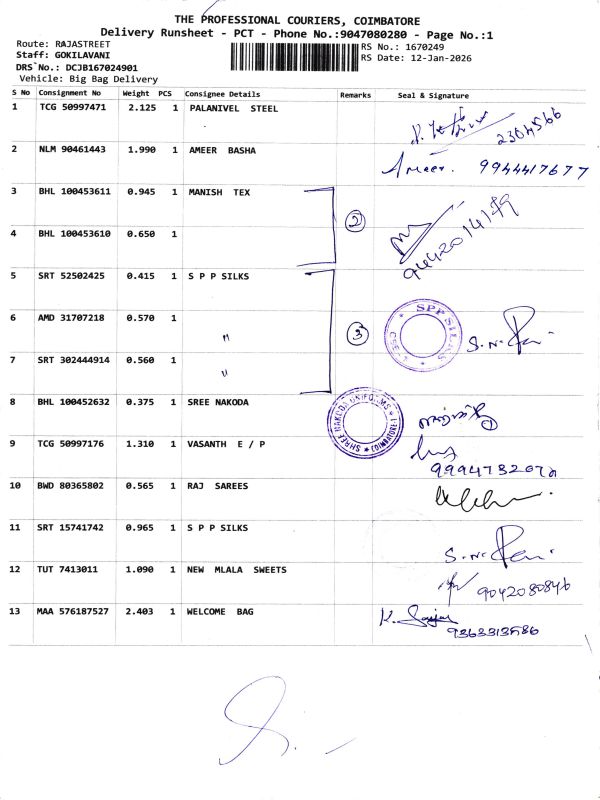 THE PROFESSIONAL COURIERS, COIMBATORE
Delivery Runsheet - PCT - Phone No.:9047080280 - Page No.:1
Route: RAJASTREET RS No.: 1670249
Staff: GOKILAVANI RS Date: 12-Jan-2026
DRS No.: DCJB167024901
Vehicle: Big Bag Delivery
S No Consignment No Weight PCS Consignee Details Remarks Seal & Signature
1 TCG 50997471 2.125 1 PALANIVEL STEEL
2304566
2 NLM 90461443 1.990 1 AMEER BASHA
Ameer. 9944417677
3 BHL 100453611 0.945 1 MANISH TEX
2
4 BHL 100453610 0.650 1
5 SRT 52502425 0.415 1 S P P SILKS
6 AMD 31707218 0.570 1
SPP SILKS
3
7 SRT 302444914 0.560 1
8 BHL 100452632 0.375 1 SREE NAKODA
SHREE NAKODA UNIFORMS COIMBATORE-1
9 TCG 50997176 1.310 1 VASANTH E / P
10 BWD 80365802 0.565 1 RAJ SAREES
11 SRT 15741742 0.965 1 S P P SILKS
12 TUT 7413011 1.090 1 NEW MLALA SWEETS
9042080846
13 MAA 576187527 2.403 1 WELCOME BAG
9363313586